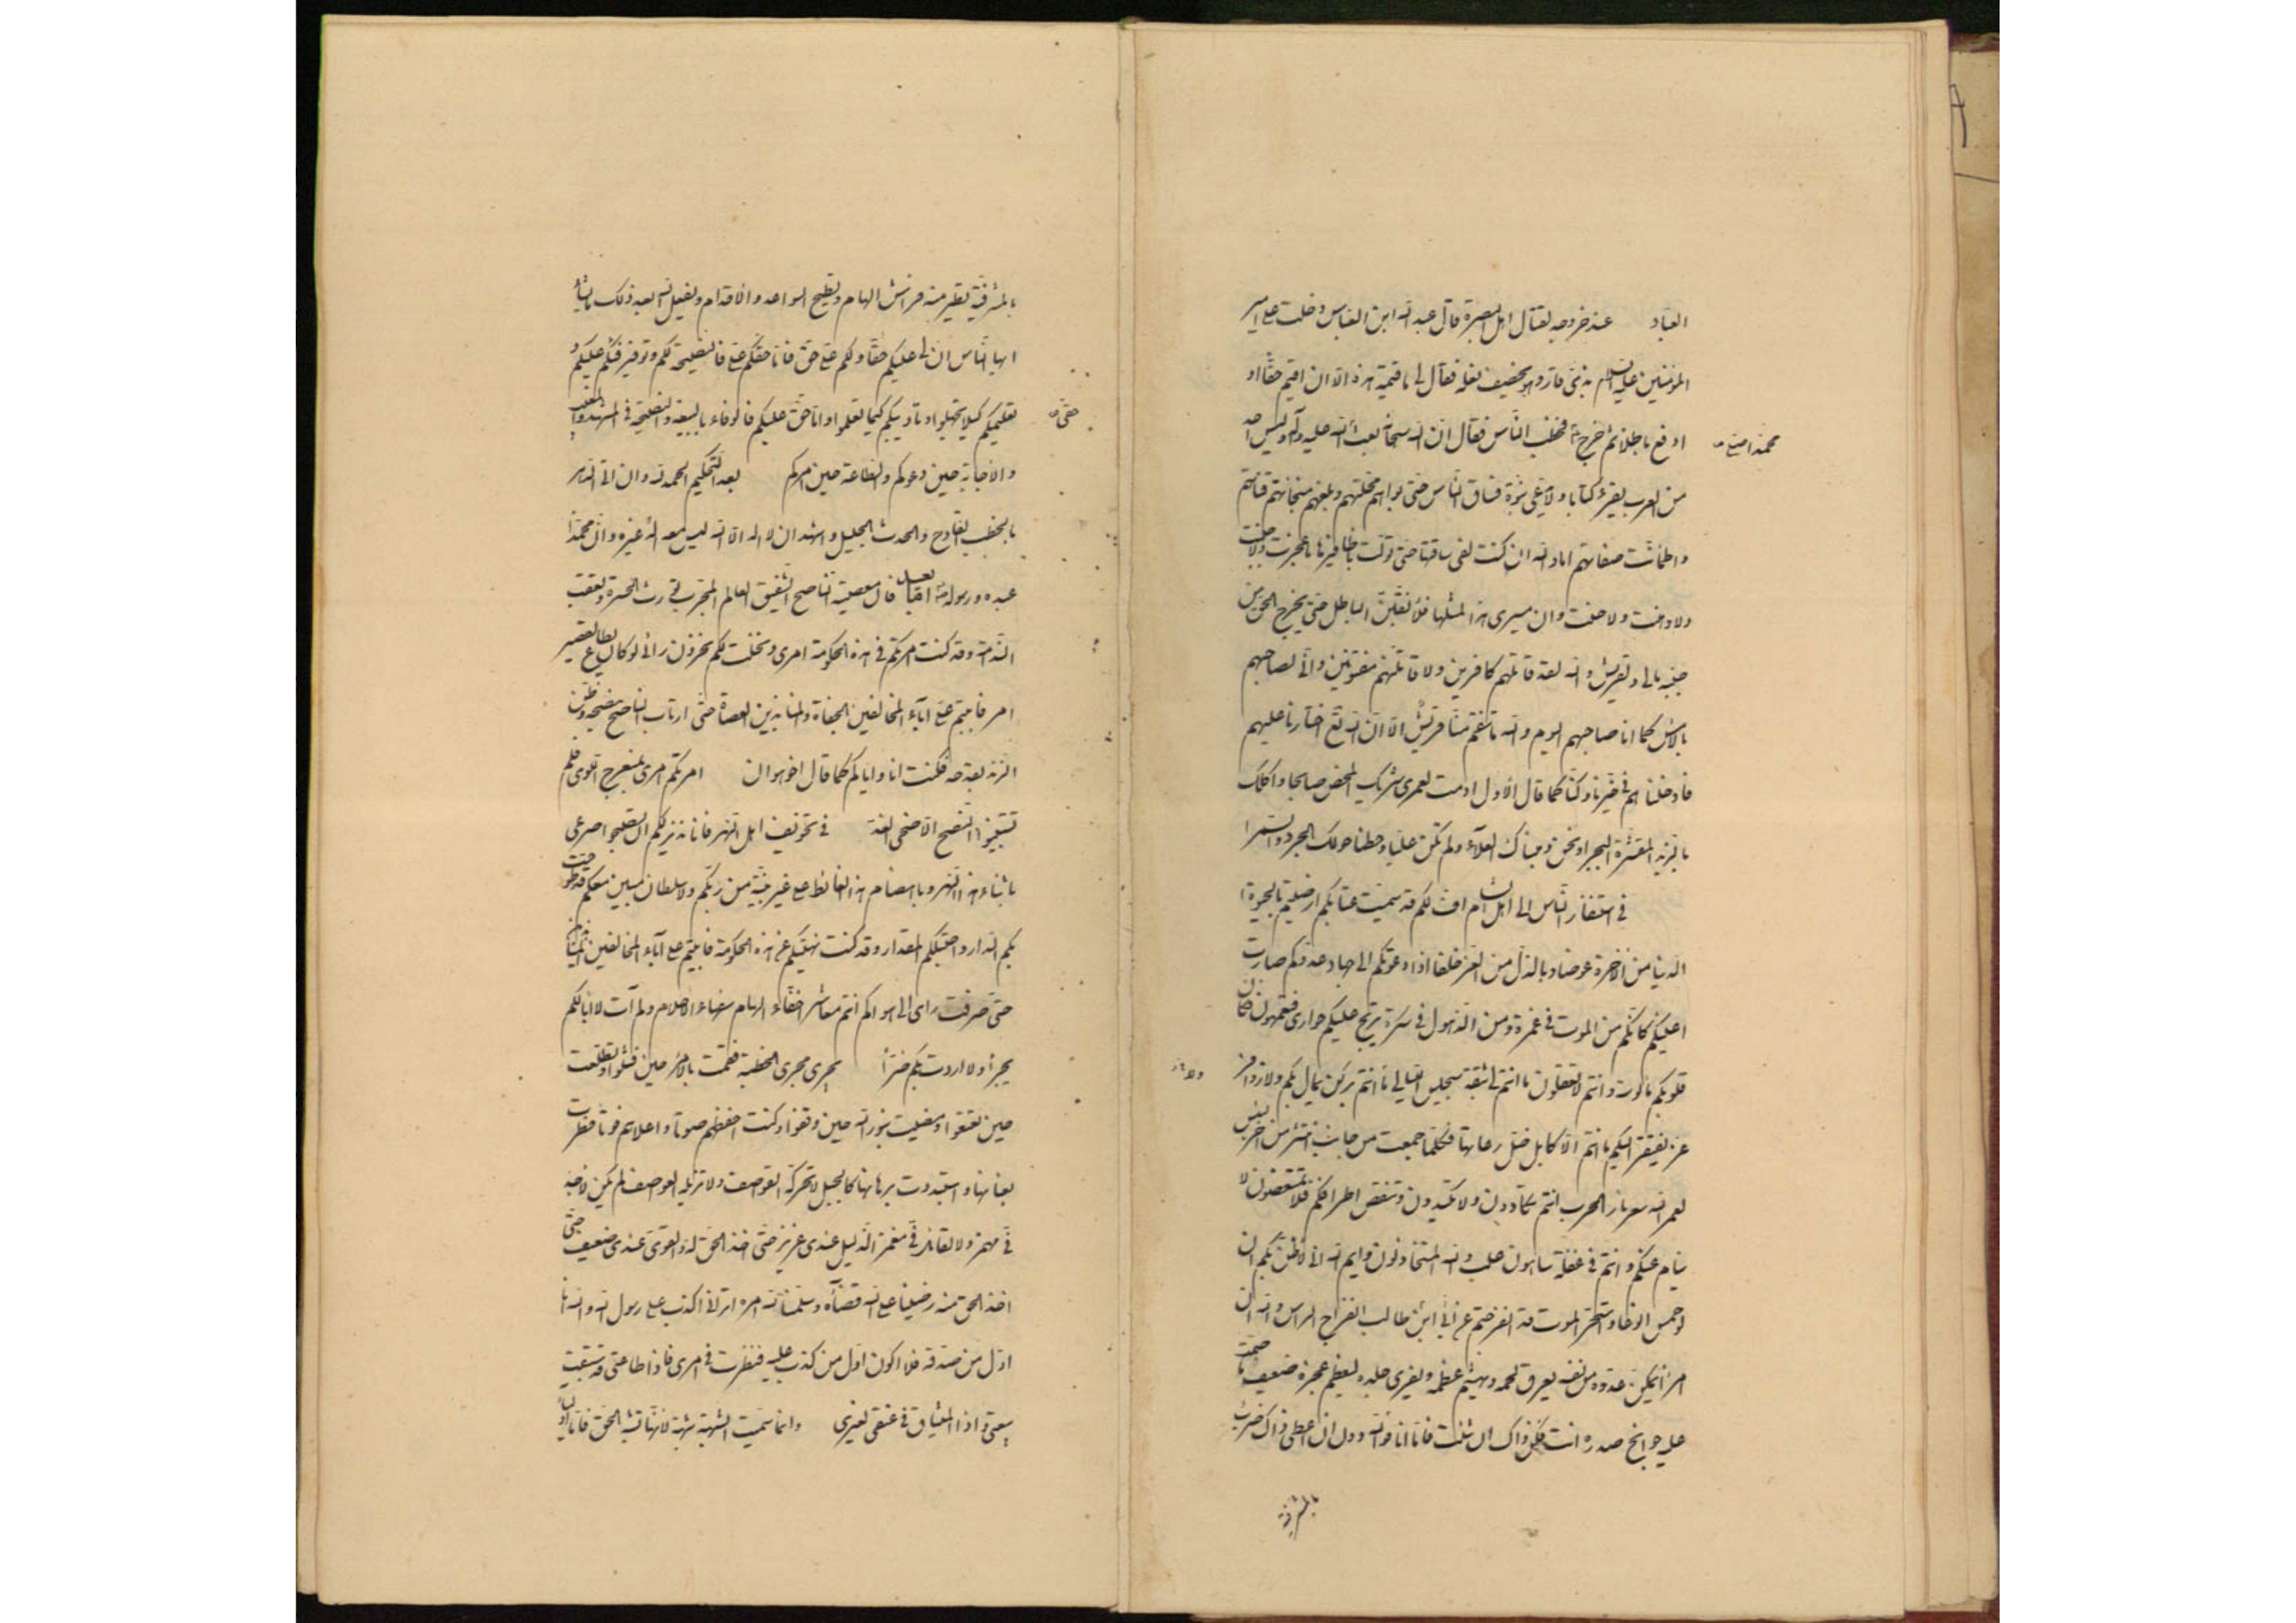 العباد عند خروجه لقتال اهل البصرة قال عبد الله ابن العباس دخلت على امير
المؤمنين عليه السلام بذى قار وهو يخصف نعله فقال لى ما قيمة هذه الا ان اقيم حقا او
ادفع باطلا ثم خرج فخطب الناس فقال ان الله سبحانه بعث الله عليه وآله وليس احد
محمدا صلى
من العرب يقرء كتابا ولا يدعى نبوة فساق الناس حتى بواهم محلتهم وبلغهم منجاتهم فاستقامت قناتهم
واطمأنت صفاتهم اما والله ان كنت لفى ساقتها حتى تولت بحذافيرها ما عجزت ولا جبنت
ولا وهنت ولا جبنت وان مسيرى هذا لمثلها فلأنقبن الباطل حتى يخرج الحق من
جنبه مالى ولقريش والله لقد قاتلتهم كافرين ولاقاتلنهم مفتونين وانى لصاحبهم
بالامس كما انا صاحبهم اليوم والله ما تنقم منا قريش الا ان الله اختارنا عليهم
فادخلناهم فى حيزنا وكنا كما قال الاول ادمت لعمرى شربك المحض صابحا واكلك
بالزبد المقشرة البجرا ونحن وهبناك العلاء ولم تكن عليا وحطنا حولك الجرد والسمرا
فى استنفار الناس الى اهل الشام اف لكم قد سئمت عتابكم ارضيتم بالحيوة
الدنيا من الاخرة عوضا وبالذل من العز خلفا اذا دعوتكم الى جهاد عدوكم دارت
اعينكم كانكم من الموت فى غمرة ومن الذهول فى سكرة يرتج عليكم حوارى فتعمهون فكان
قلوبكم مألوسة وانتم لا تعقلون ما انتم لى بثقة سجيس الليالى ما انتم بركن يمال بكم ولا زوافر
عز يفتقر اليكم ما انتم الا كابل ضل رعاتها فكلما جمعت من جانب انتشرت من اخر لبئس
لعمر الله سعر نار الحرب انتم تكادون ولا تكيدون وتنتقص اطرافكم فلا تمتعضون لا
ينام عنكم وانتم فى غفلة ساهون غلب والله المتخاذلون وايم الله انى لاظن بكم ان
لو حمس الوغا واستحر الموت قد انفرجتم عن ابن ابى طالب انفراج الراس والله ان
امرأ يمكن عدوه من نفسه يعرق لحمه ويهشم عظمه ويفرى جلده لعظيم عجزه ضعيف ما ضمت
عليه جوانح صدره انت فكن ذاك ان شئت فاما انا فوالله دون ان اعطى ذاك ضرب
بالمشرفية
بالمشرفية تطير منه فراش الهام وتطيح السواعد والاقدام ويفعل الله بعد ذلك ما يشاء
ايها الناس ان لى عليكم حقا ولكم على حق فاما حقكم على فالنصيحة لكم وتوفير فيئكم عليكم و
تعليمكم كيلا تجهلوا وتاديبكم كيما تعلموا واما حق عليكم فالوفاء بالبيعة والنصيحة فى المشهد والمغيب
حقى
والاجابة حين ادعوكم والطاعة حين امركم بعد التحكيم الحمد لله وان اتى الدهر
بالخطب الفادح والحدث الجليل واشهد ان لا اله الا الله ليس معه اله غيره وان محمدا
عبده ورسوله اما بعد فان معصية الناصح الشفيق العالم المجرب تورث الحسرة وتعقب
الندامة وقد كنت امرتكم فى هذه الحكومة امرى ونخلت لكم مخزون رائى لو كان يطاع لقصير
امر فابيتم على اباء المخالفين الجفاة والمنابذين العصاة حتى ارتاب الناصح بنصحه وضن
الزند بقدحه فكنت انا واياكم كما قال اخو هوازن امرتكم امرى بمنعرج اللوى فلم
تستبينوا النصح الا ضحى الغد فى تخويف اهل النهر فانا نذير لكم ان تصبحوا صرعى
باثناء هذا النهر وباهضام هذا الغائط على غير بينة من ربكم ولا سلطان مبين معكم قد طوحت
بكم الدار واحتبلكم المقدار وقد كنت نهيتكم عن هذه الحكومة فابيتم على اباء المخالفين المنابذين
حتى صرفت راى الى هواكم انتم معاشر اخفاء الهام سفهاء الاحلام ولم آت لا ابا لكم
بجرا ولا اردت بكم ضرا يجرى مجرى الخطبة فقمت بالامر حين فشلوا وتطلعت
حين تقبعوا ومضيت بنور الله حين وقفوا وكنت اخفضهم صوتا واعلاهم فوتا فطرت
بعنانها واستبددت برهانها كالجبل لا تحركه القواصف ولا تزيله العواصف لم يكن لاحد
فى مهمز ولا لقائل فى مغمز الذليل عندى عزيز حتى اخذ الحق له والقوى عندى ضعيف حتى
اخذ الحق منه رضينا عن الله قضاءه وسلمنا لله امره اترانى اكذب على رسول الله والله لانا
اول من صدقه فلا اكون اول من كذب عليه فنظرت فى امرى فاذا طاعتى قد سبقت
بيعتى واذا الميثاق فى عنقى لغيرى وانما سميت الشبهة شبهة لانها تشبه الحق فاما اولياء